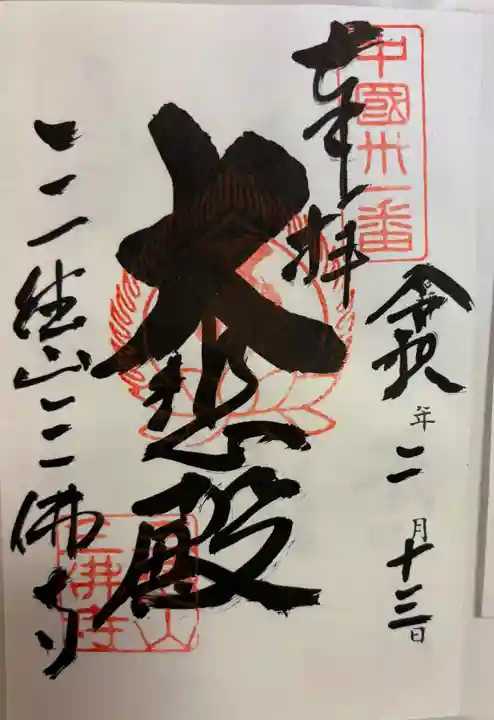 中國卅一番
奉拝
令和 年二月十三日
大悲殿
三徳山三佛寺
三徳山
三佛寺